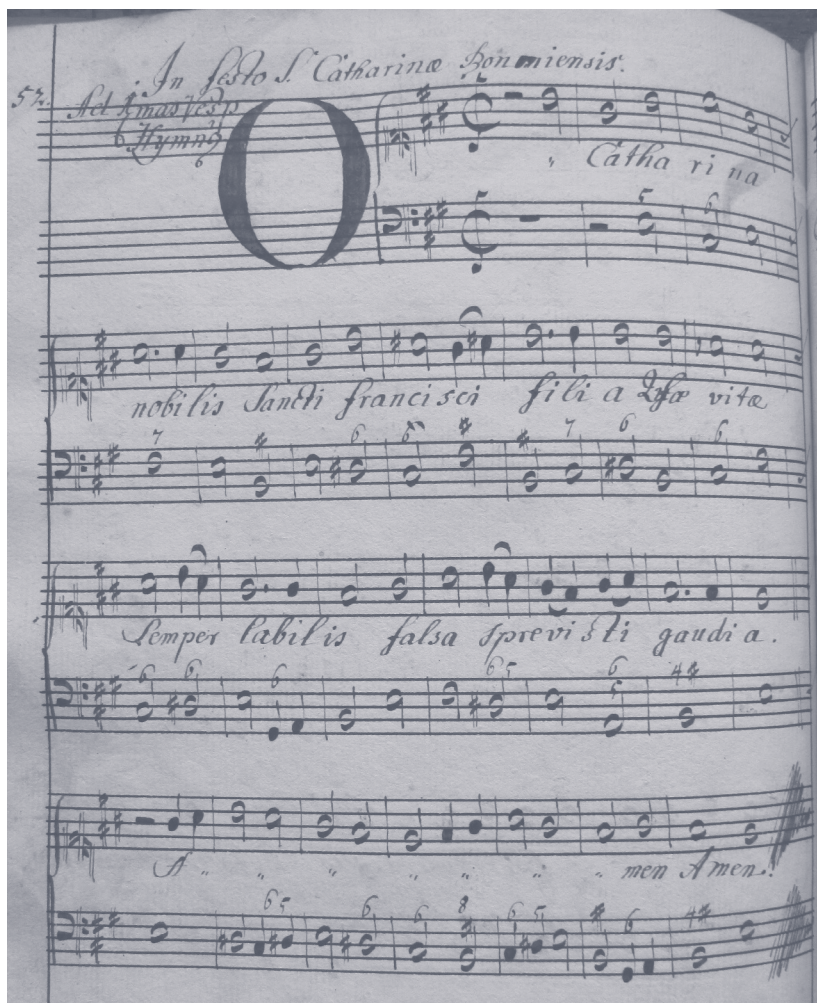 In festo S. Catharinæ Bononiensis.
52. Ad Imas Vesp
Hymn9
O Catha ri na
5 6
nobilis Sancti francisci fili a vitæ
7 6 6 7 6 6
Semper labilis falsa sprevisti gaudi a.
6 6 6 6 5 6 5 4
A men Amen.
6 5 6 6 8 6 5 6 4